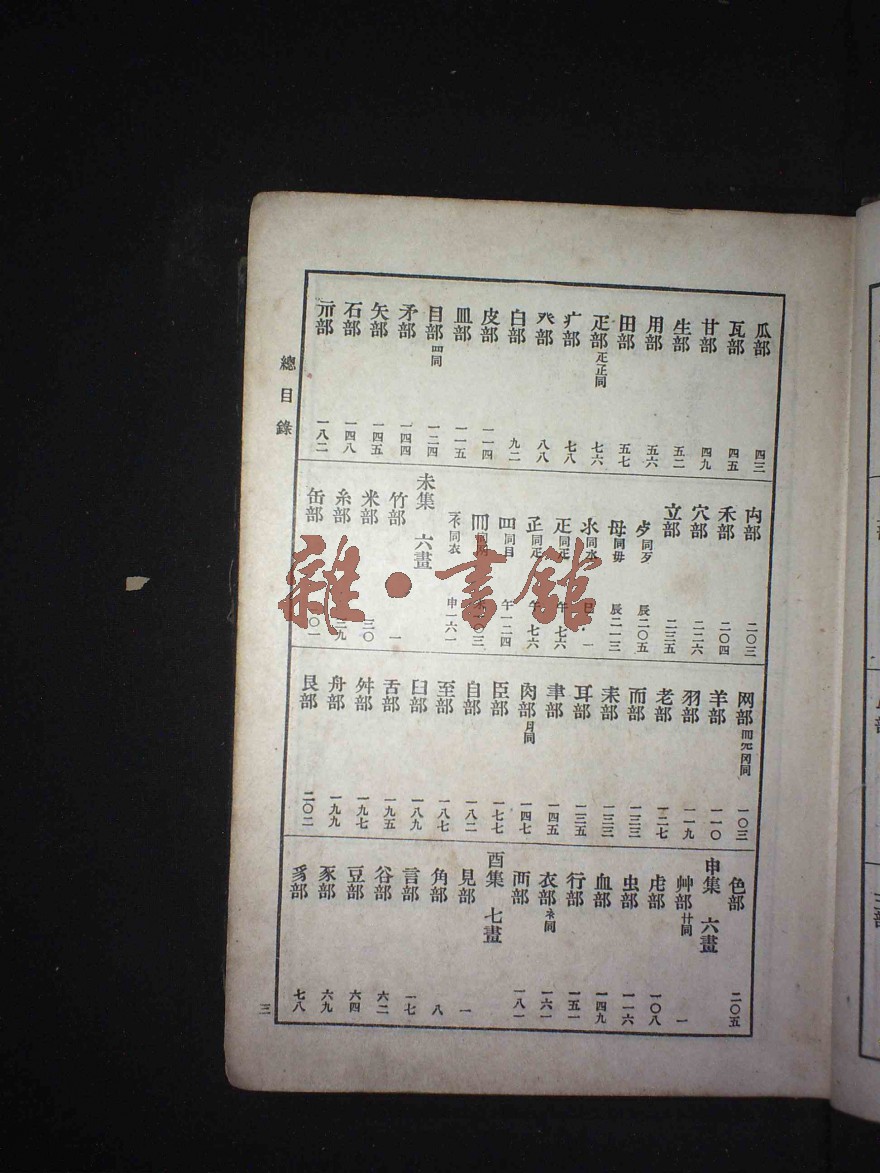 瓜部 四三
瓦部 四五
甘部 四九
生部 五二
用部 五六
田部 五七
疋部 𤴔正同 七六
疒部 七八
癶部 八八
白部 九二
皮部 一一四
皿部 一一五
目部 罒同 一二四
矛部 一四四
矢部 一四五
石部 一四八
示部 一八二
禸部 二〇三
禾部 二〇四
穴部 二二六
立部 二三五
歺 同歹 辰二〇五
母 同毋 辰二一三
氺 同水 巳 一
𤴔 同疋 午 七六
𤴓 同疋 午 七六
罒 同目 午一二四
衤 同衣 申一六一
未集 六畫
竹部 一
米部 三〇
糸部 三九
缶部
网部 一〇三
羊部 一一〇
羽部 一一九
老部 一二七
而部 一三三
耒部 一三三
耳部 一三五
聿部 一四五
肉部 月同 一四七
臣部 一七七
自部 一八二
至部 一八七
臼部 一八九
舌部 一九五
舛部 一九七
舟部 一九九
艮部 二〇二
色部 二〇五
申集 六畫
艸部 廾同 一
虍部 一〇八
虫部 一一六
血部 一四九
行部 一五一
衣部 衤同 一六一
襾部 一八一
酉集 七畫
見部 一
角部 八
言部 一七
谷部 六二
豆部 六四
豕部 六九
豸部 七八
總目錄
三
雜·書館